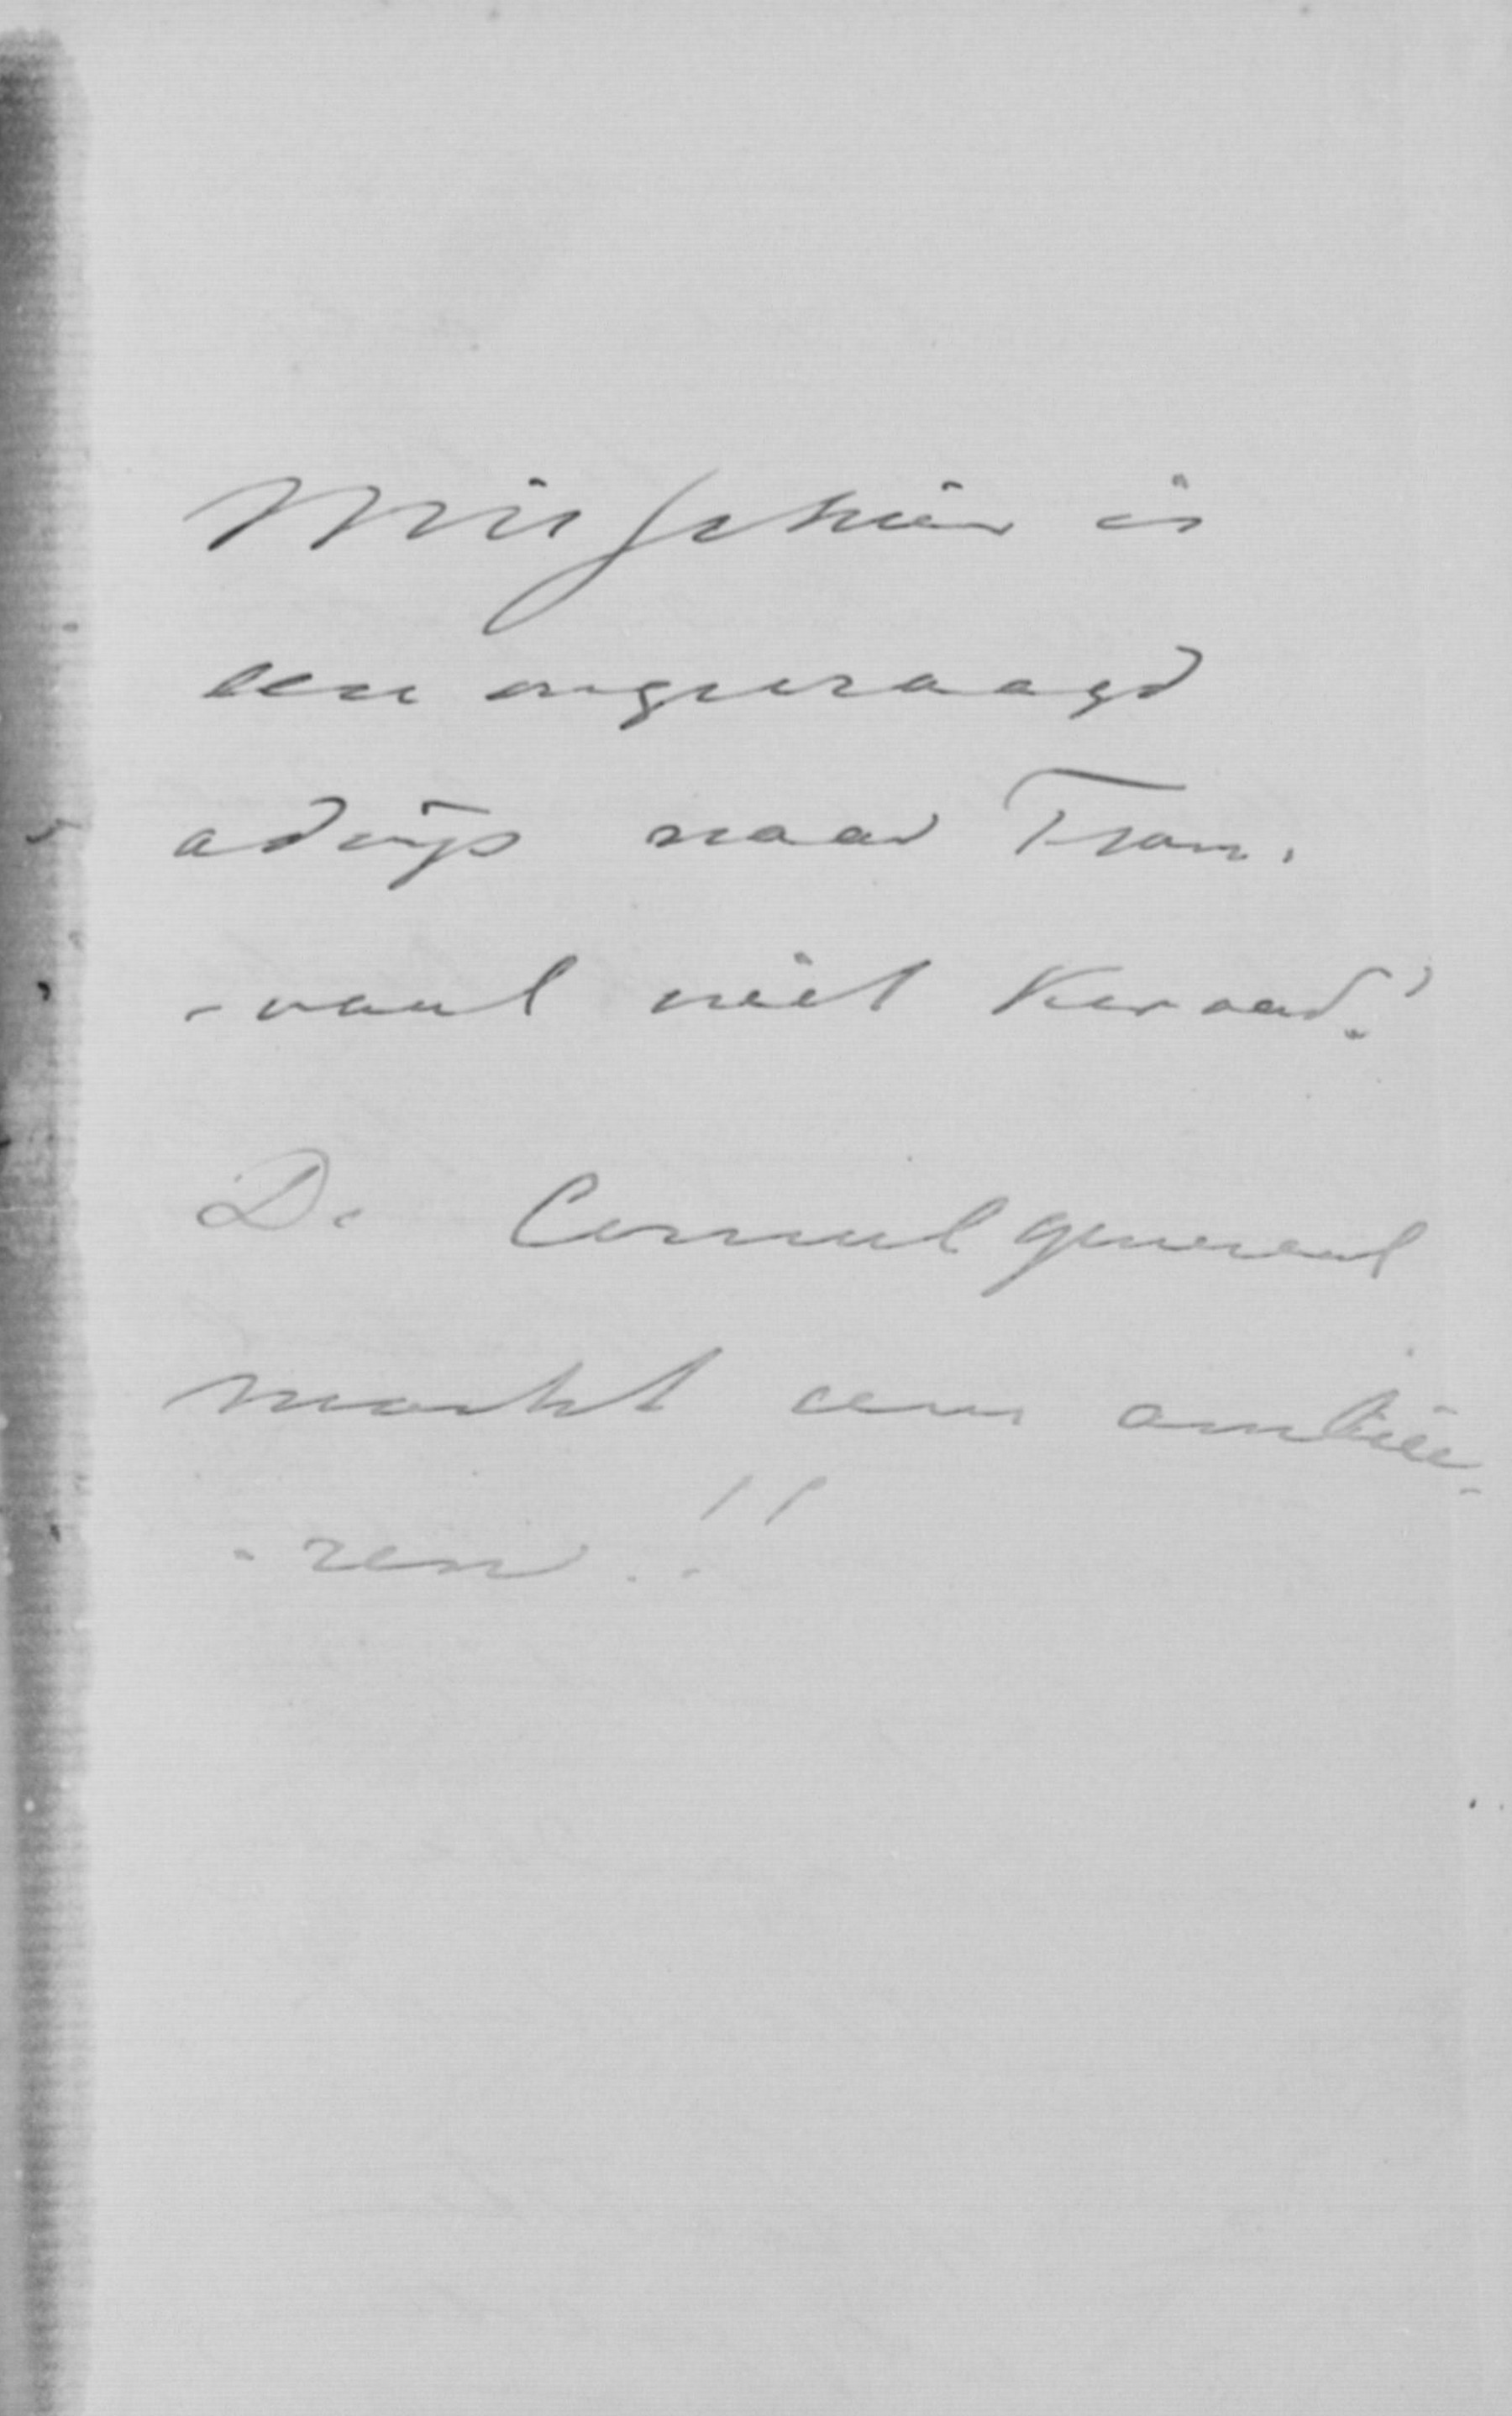 Misschien is
een ongevraagd
advijs naar Trans.
-vaal niet kwaad!
De Consul generaal
mocht eens ambiëe-
-ren..!!